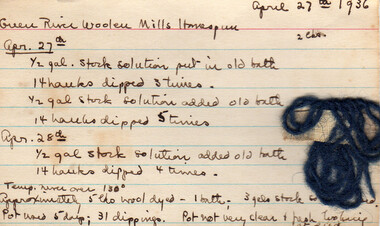 April 27th 1936
Green River Woolen Mills Homespun
2 lbs.
Apr. 27th
1/2 gal. Stock solution put in old bath
14 hanks dipped 5 times.
1/2 gal stock solution added old bath
14 hanks dipped 5 times
Apr. 28th
1/2 gal stock solution added old bath
14 hanks dipped 4 times.
Temp. never over 130°
Approximately 5 lbs wool dyed - 1 bath; 3 gals stock
Pot used 5 days; 31 dippings. Pot not very clear & fresh